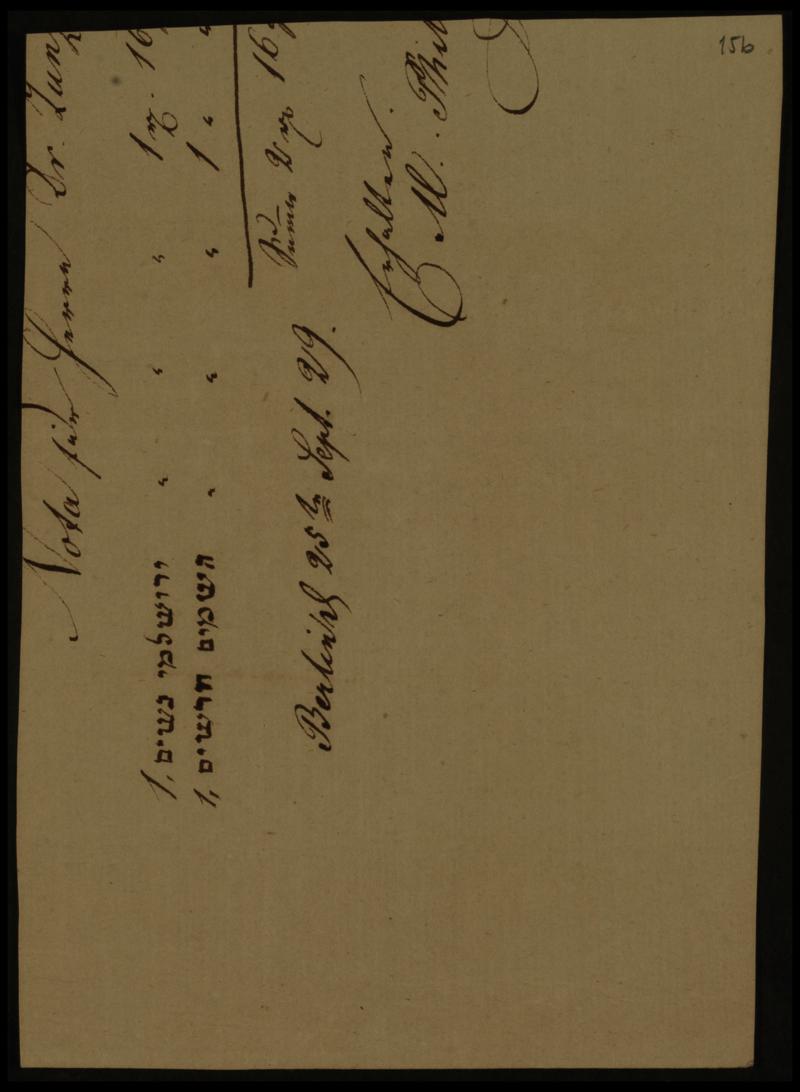 156
Nota für Herrn Dr. Zunz
1, ירושלמי נשים " " " 1 rℓ. 16
1, השמים חדשים " " " 1 " "
Summe 2 rℓ 16
Berlin 25tn Sept. 29.
Erhalten.
M. Phil